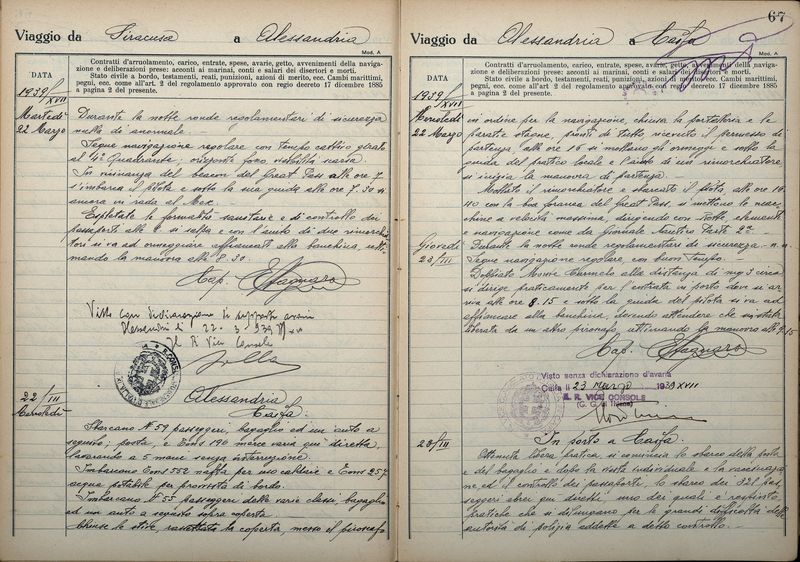 Viaggio da Siracusa a Alessandria
Mod. A
DATA
Contratti d'arruolamento, carico, entrate, spese, avarie, getto, avvenimenti della naviga-
zione e deliberazioni prese: acconti ai marinai, conti e salari dei disertori e morti.
Stato civile a bordo, testamenti, reati, punizioni, azioni di merito, ecc. Cambi marittimi,
pegni, ecc. come all'art. 2 del regolamento approvato con regio decreto 17 dicembre 1885
a pagina 2 del presente.
1939/XVII
Martedì
22 Marzo
Durante la notte ronde regolamentari di sicurezza
nulla di anormale. —
Segue navigazione regolare con tempo cattivo girato
al 4° Quadrante, orizzonte fosco, visibilità scarsa.
In vicinanza del beacon del Great Pass alle ore 7
s'imbarca il pilota e sotto la sua guida alle ore 7.30 si
ancora in rada al Mex.
Espletate le formalità sanitarie e di controllo dei
passaporti alle 8 si salpa e con l'aiuto di due rimorchia
tori si va ad ormeggiare affiancati alla banchina, ulti-
mando la manovra alle 8.30.
Cap.
Visto con dichiarazione di supposte avarie
Alessandria li 22-3-1939 XVII
Il R Vice Console
22/III
Mercoledì
Alessandria
Caifa.
Sbarcano N° 59 passeggeri, bagaglio ed un auto a
seguito, posta, e Tons 190 merce varia qui diretta,
lavorando a 5 mani senza interruzione.
Imbarcano Tons 552 nafta per uso caldaie e Tons 257
acqua potabile per provvista di bordo.
Imbarcano N° 55 passeggeri delle varie classi, bagaglio
ed un auto a seguito sopra coperta.
Chiuse le stive, la coperta, messo il piroscafo
67
Viaggio da Alessandria a Caifa
Mod. A
DATA
Contratti d'arruolamento, carico, entrate, spese, avarie, getto, avvenimenti della naviga-
zione e deliberazioni prese: acconti ai marinai, conti e salari dei disertori e morti.
Stato civile a bordo, testamenti, reati, punizioni, azioni di merito, ecc. Cambi marittimi,
pegni, ecc. come all'art. 2 del regolamento approvato con regio decreto 17 dicembre 1885
a pagina 2 del presente.
1939/XVII
Mercoledì
22 Marzo
in ordine per la navigazione, chiusa la portelleria e le
parate stagne, pronti di tutto ricevuto il permesso di
partenza, alle ore 16 si mollano gli ormeggi e sotto la
guida del pratico locale e l'aiuto di un rimorchiatore
si inizia la manovra di partenza.
Mollato il rimorchiatore e sbarcato il pilota alle ore 16
40 con la boa franca del Great Pass, si mettono le mac-
chine a velocità massima, dirigendo con rotte, elementi
e navigazione come da Giornale Nautico Parte 2ª —
Giovedì
23/III
Durante la notte ronde regolamentari di sicurezza - n. n.
Segue navigazione regolare, con buon tempo.
Doppiato Monte Carmelo alla distanza di mg 3 circa
si dirige praticamente per l'entrata in porto dove si ar
riva alle ore 8.15 e sotto la guida del pilota si va ad
affiancare alla banchina, dovendo attendere che sia stata
liberata da un altro piroscafo, ultimando la manovra alle 9.15
Cap.
Visto senza dichiarazione d'avaria
Caifa li 23 marzo 1939 XVII
IL R. VICE CONSOLE
23/III
In porto a Caifa.
Ottenuta libera pratica si comincia lo sbarco della posta
e del bagaglio e dopo la visita individuale e la vaccinazio
ne ed il controllo dei passaporti, lo sbarco dei 321 pas
seggeri ebrei qui diretti, uno dei quali è respinto,
pratiche che si dilungano per le grandi difficoltà delle
autorità di polizia addette a detto controllo. —